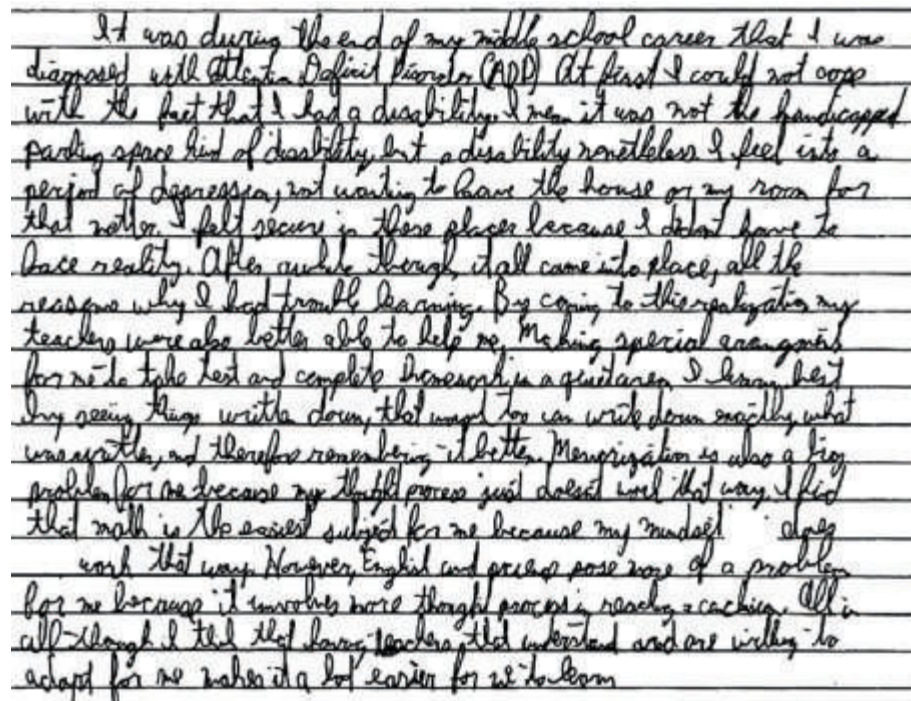 It was during the end of my middle school career that I was
diagnosed with Attention Deficit Disorder (ADD) At first I could not cope
with the fact that I had a disability. I mean it was not the handicapped
parking space kind of disability, but a disability nonetheless I feel into a
period of depression, not wanting to leave the house or my room for
that matter. I felt secure in these places because I didnt have to
face reality. After awhile though, it all came into place, all the
reasons why I had trouble learning. By coming to this realization my
teachers were also better able to help me. Making special arangments
for me to take test and complete homework in a quiet area I learn best
by seeing things written down, that way I too can write down exactly what
was written, and therefore remembering it better. Memorization is also a big
problem for me because my thought process just doesnt work that way. I find
that math is the easiest subject for me because my mindset does
work that way. However, English and science pose more of a problem
for me because it involves more thought process in reaching a
all though I that having teachers that understand and are willing to
adapt for me makes it a lot easier for me to learn